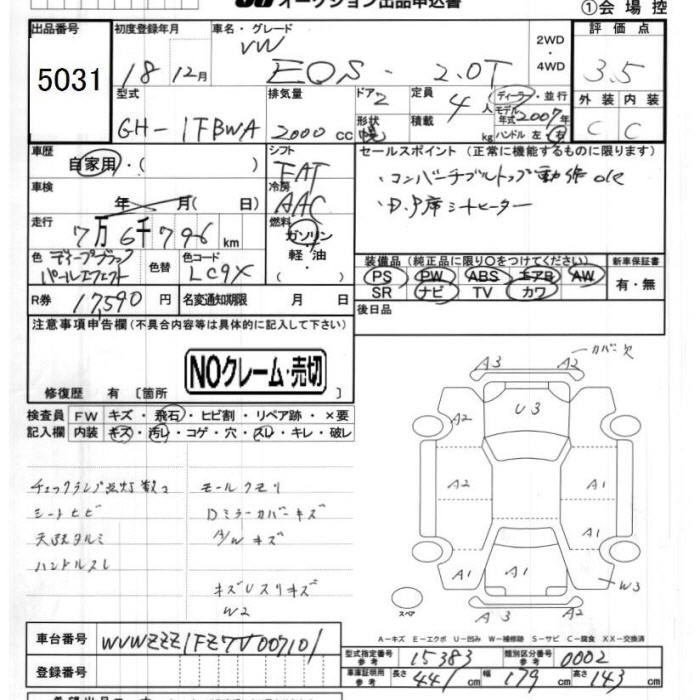 オークション出品申込書
①会場控
出品番号 初度登録年月 車名・グレード 評価点
5031 18年12月 VW EOS - 2.0T 2WD・4WD 3.5
型式 排気量 ドア 定員 ディーラー・並行 外装 内装
GH-1FBWA 2000cc 2 4人 モデル年式 2007年 C C
形状 幌 積載 kg ハンドル 左・右
車歴 自家用・( ) シフト FAT
セールスポイント(正常に機能するものに限ります)
・コンバーチブルトップ動作OK
・D.P席シートヒーター
車検 年 月( 日) 冷房 AAC
走行 7万6千796km 燃料 ガソリン・軽油・( )
色 ディープブラックパールエフェクト 色替 色コード LC9X
装備品(純正品に限り○をつけてください) 新車保証書
PS PW ABS エアB AW 有・無
SR ナビ TV カワ
R券 17,590円 名変通知期限 月 日
後日品
注意事項申告欄(不具合内容等は具体的に記入して下さい)
NOクレーム・売切
修復歴 有〔箇所 〕
検査員記入欄 FW キズ・飛石・ヒビ割・リペア跡・×要
内装 キズ・汚レ・コゲ・穴・スレ・キレ・破レ
チェックランプ点灯数コ モールクモリ
シートヒビ Dミラーカバーキズ
天張タルミ A/Wキズ
ハンドルスレ
キズUスリキズ
W2
A3 A2 カバー欠
U3
A2
A2 A1
A1
A1 A1 W3
スペア
A3 A2
A-キズ E-エクボ U-凹み W-補修跡 S-サビ C-腐食 XX-交換済
車台番号 WVWZZZ1FZ7V007101
登録番号
型式指定番号 参考 15383 類別区分番号 参考 0002
車庫証明用 参考 長さ 441cm 幅 179cm 高さ 143cm